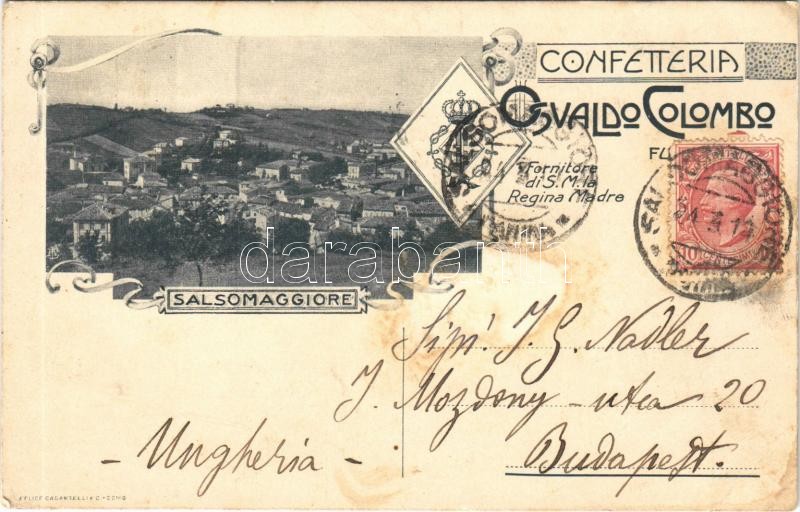 CONFETTERIA
OSVALDO COLOMBO
FU
Fornitore
di S. M. la
Regina Madre
SALSOMAGGIORE
SALSOMAGGIORE
10
darabanth.com
SALSOMAGGIORE
Sigr. J. G. Nadler
I. Mozdony - utca 20
- Ungheria -
Budapest.